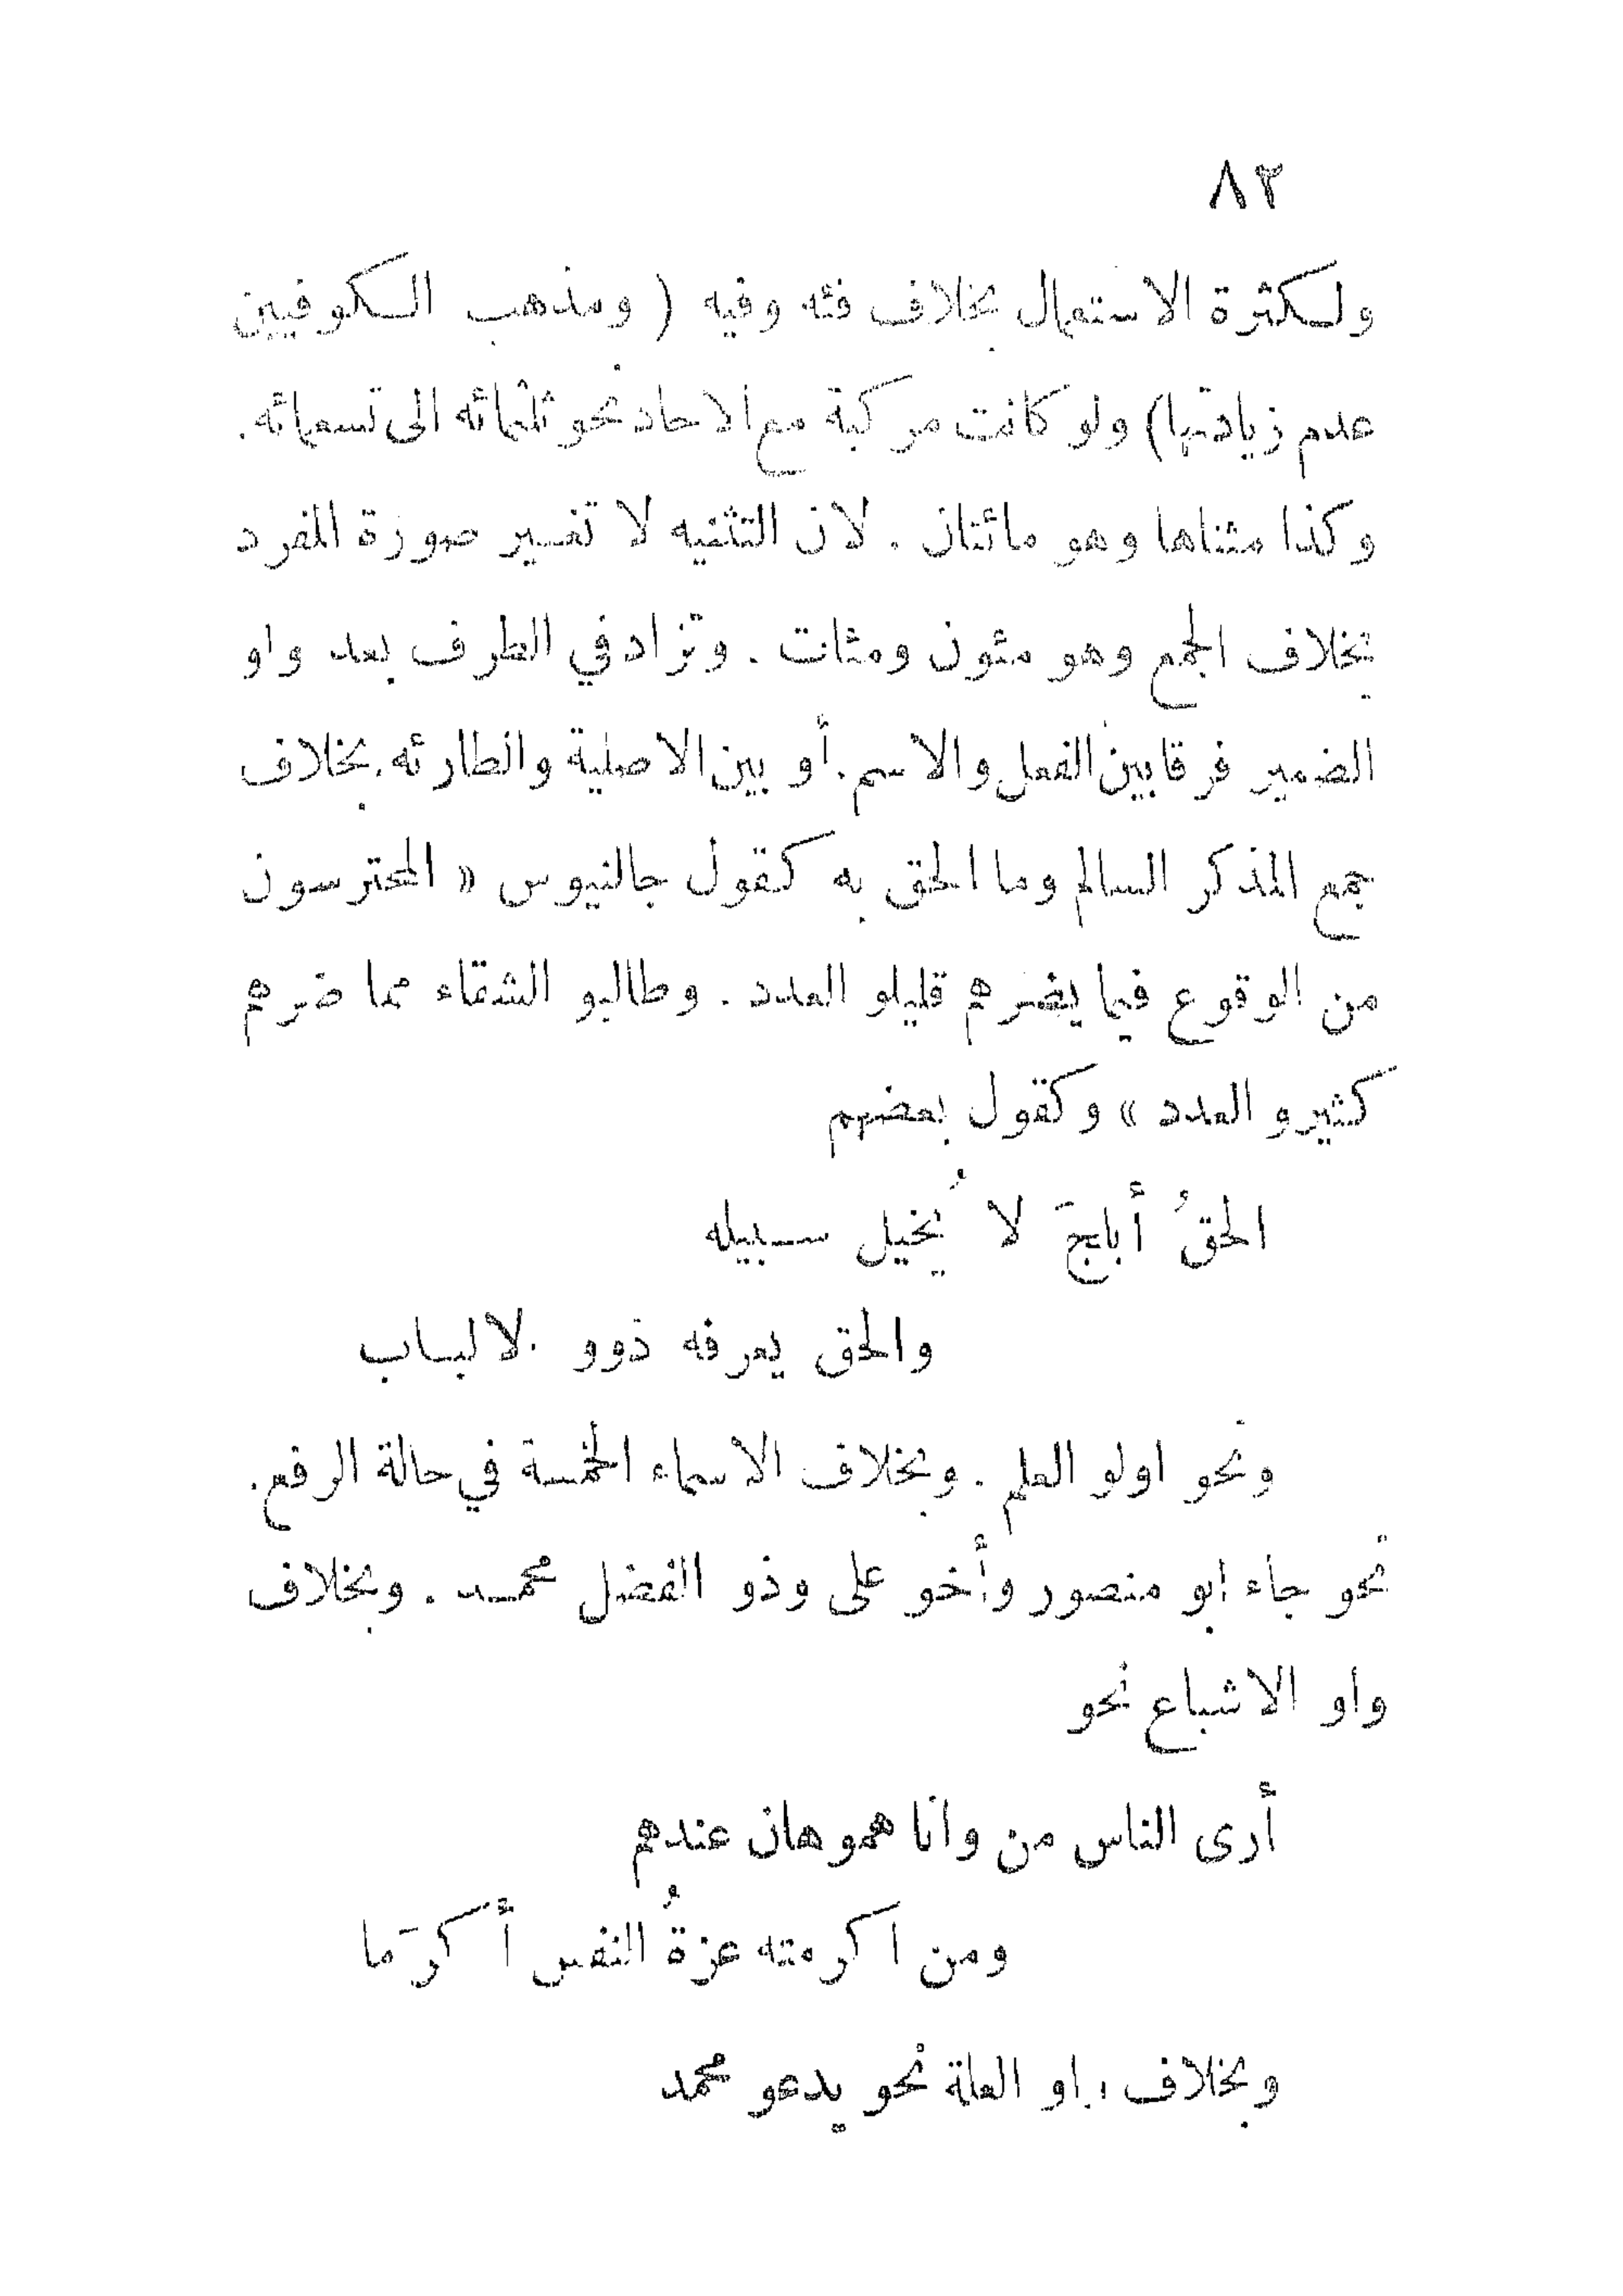 ٨٢
ولكثرة الاستعمال بخلاف فئه وفيه ( ومذهب الكوفيين
عدم زيادتها) ولو كانت مركبة مع الاحاد نحو ثلثمائه الى تسعمائه.
وكذا مثناها وهو مائتان . لان التثنيه لا تغير صورة المفرد
بخلاف الجمع وهو مئون ومئات . وتزاد في الطرف بعد واو
الضمير فرقا بين الفعل والاسم. أو بين الاصلية والطارئه. بخلاف
جمع المذكر السالم وما الحق به كقول جالنيوس « المحترسون
من الوقوع فيما يضرهم قليلو العدد . وطالبو الشفاء مما ضرهم
كثيرو العدد » وكقول بعضهم
الحقُ أبلجَ لا يُخيل سبيله
والحق يعرفه ذوو الالباب
ونحو اولو العلم . وبخلاف الاسماء الخمسة في حالة الرفع.
نحو جاء ابو منصور وأخو على وذو الفضل محمد . وبخلاف
واو الاشباع نحو
أرى الناس من وانا همو هان عندهم
ومن اكرمته عزةُ النفس أكرَما
وبخلاف واو العلة نحو يدعو محمد